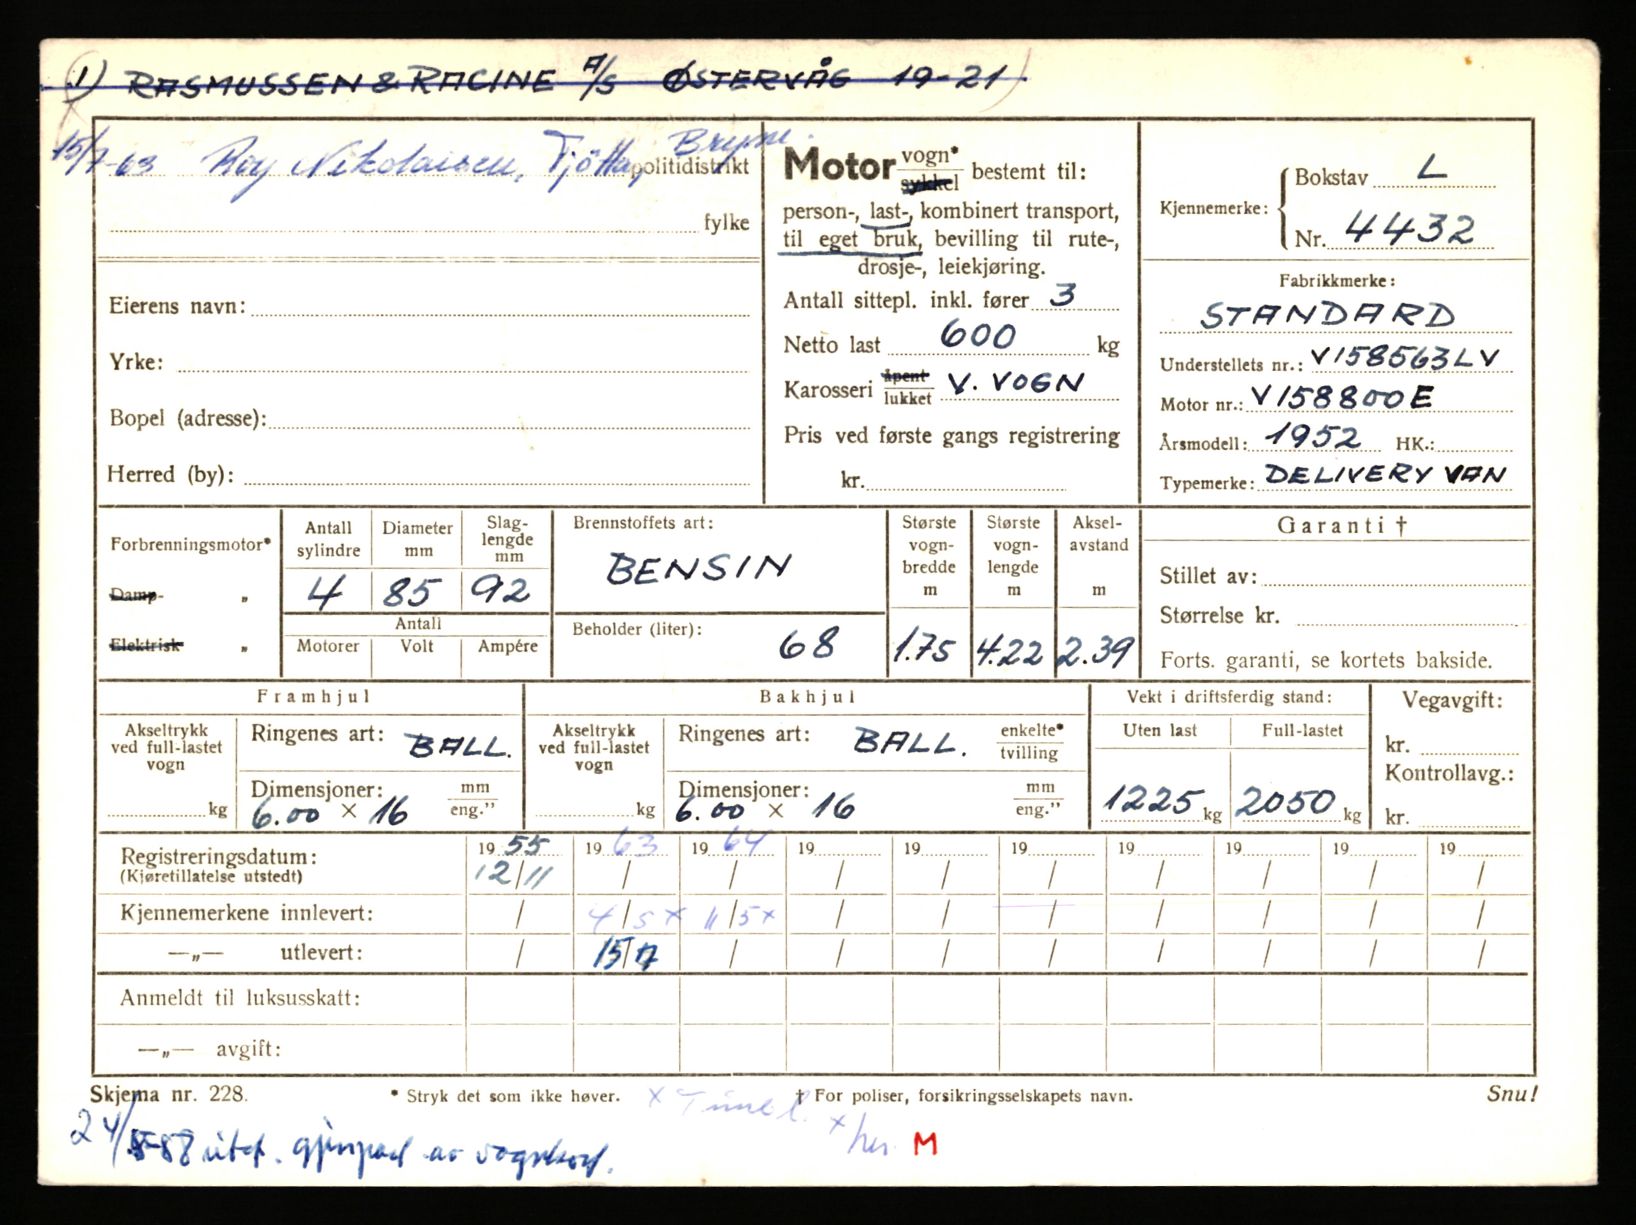 1) RASMUSSEN & RACINE A/S ØSTERVÅG 19-21
15/7-63 Roy Nikolaisen, Tjøtta, Bryne.
politidistrikt
fylke
Eierens navn:
Yrke:
Bopel (adresse):
Herred (by):
Motor vogn* sykkel bestemt til:
person-, last-, kombinert transport,
til eget bruk, bevilling til rute-,
drosje-, leiekjøring.
Antall sittepl. inkl. fører 3
Netto last 600 kg
Karosseri åpent lukket V. VOGN
Pris ved første gangs registrering
kr.
Kjennemerke: Bokstav L
Nr. 4432
Fabrikkmerke:
STANDARD
Understellets nr.: V158563LV
Motor nr.: V158800E
Årsmodell: 1952 HK.:
Typemerke: DELIVERY VAN
Forbrenningsmotor*
Damp- „
Elektrisk „
Antall sylindre
4
Diameter mm
85
Slag-lengde mm
92
Antall
Motorer Volt Ampére
Brennstoffets art:
BENSIN
Beholder (liter):
68
Største vogn-bredde m
1.75
Største vogn-lengde m
4.22
Aksel-avstand m
2.39
Garanti †
Stillet av:
Størrelse kr.
Forts. garanti, se kortets bakside.
Framhjul
Akseltrykk ved full-lastet vogn
kg
Ringenes art: BALL.
Dimensjoner: mm eng.”
6.00 × 16
Bakhjul
Akseltrykk ved full-lastet vogn
kg
Ringenes art: BALL. enkelte* tvilling
Dimensjoner: mm eng.”
6.00 × 16
Vekt i driftsferdig stand:
Uten last Full-lastet
1225 kg 2050 kg
Vegavgift:
kr.
Kontrollavg.:
kr.
Registreringsdatum: 19 55 19 63 19 64 19 19 19 19 19 19 19
(Kjøretillatelse utstedt) 12/11 / / / / / / / / /
Kjennemerkene innlevert: / 4/5 x 11/5 x / / / / / / /
—„— utlevert: / 15/7 / / / / / / / /
Anmeldt til luksusskatt:
—„— avgift:
Skjema nr. 228. * Stryk det som ikke høver. † For poliser, forsikringsselskapets navn. Snu!
x
x/ M
24/5-58 utst. gjenpart av vognkort.